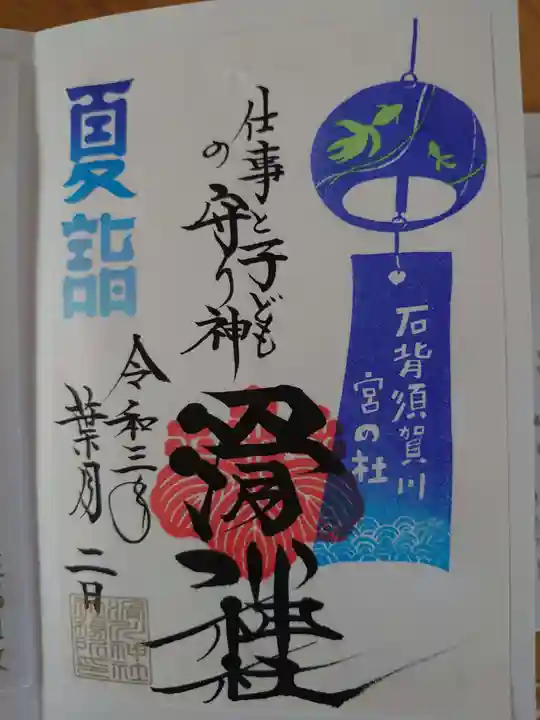 石背須賀川
宮の杜
仕事と子ども
の守り神
滑川神社
夏詣
令和三年
葉月二日